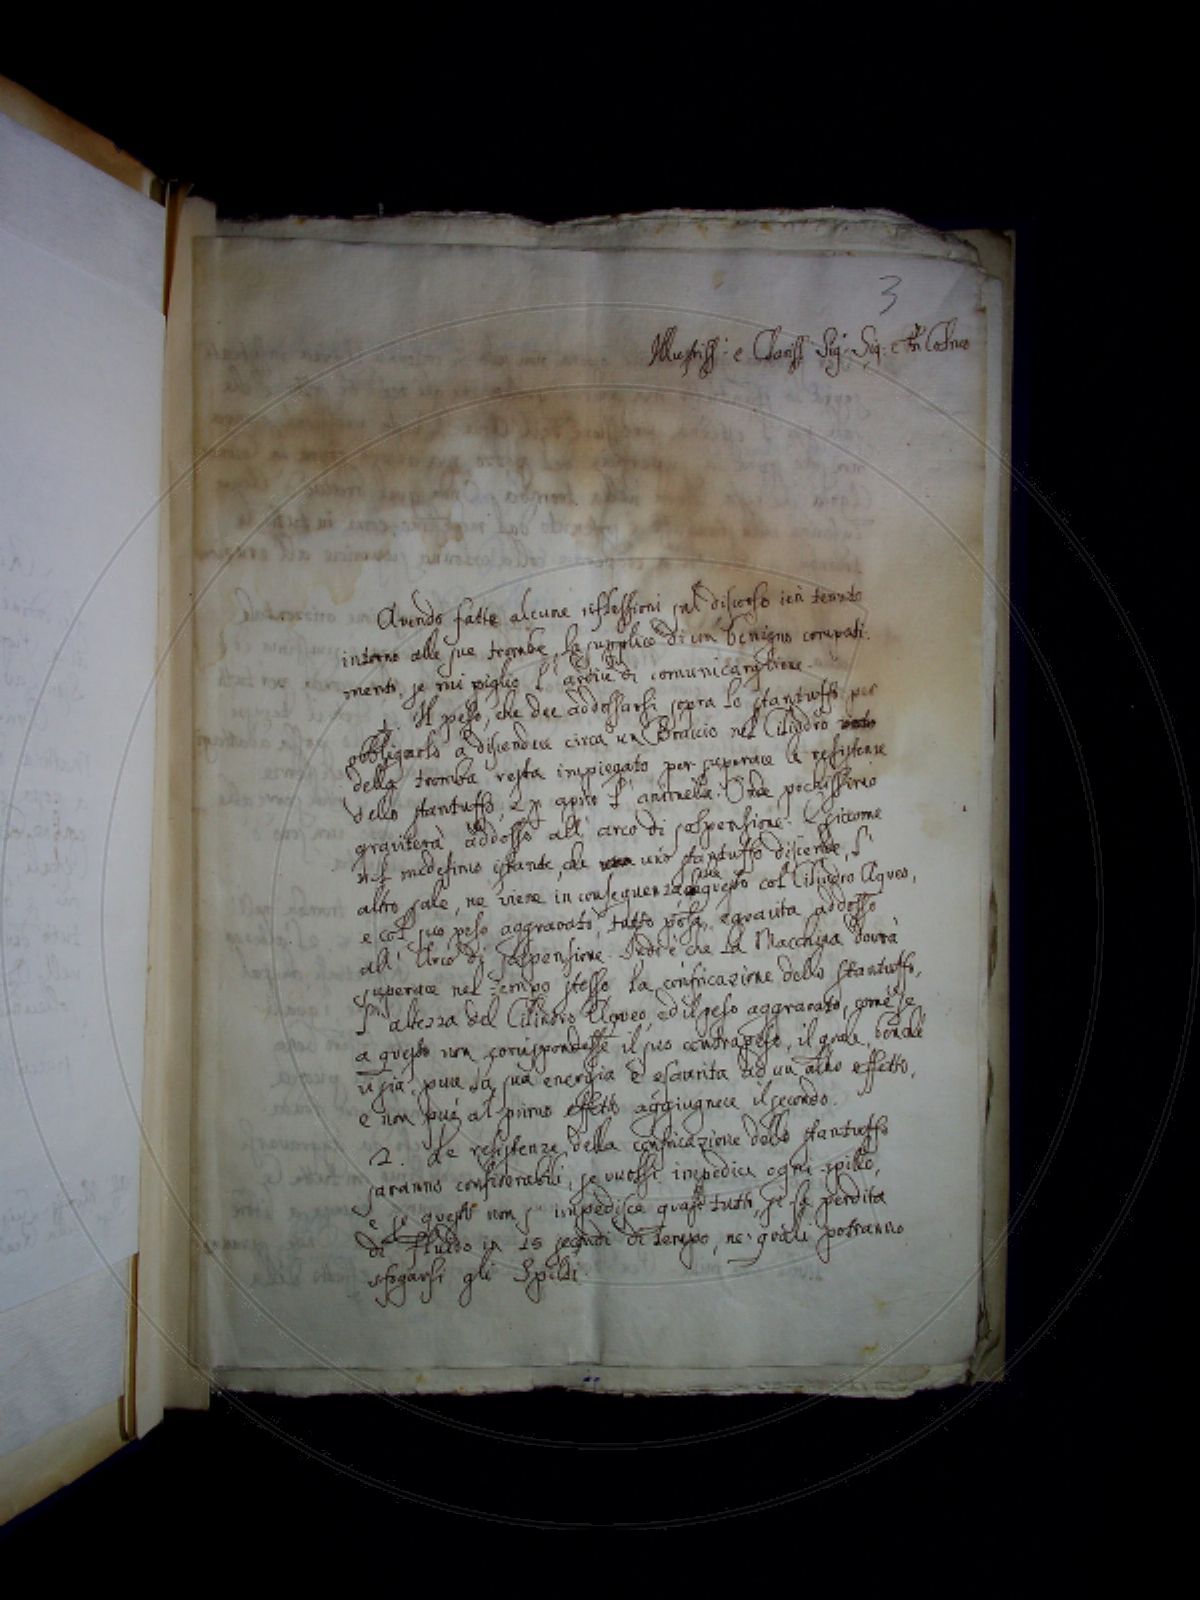 3
Illustriss: e Clariss: Sig: Sig: e
Avendo fatte alcune riflessioni sul discorso ieri tenuto
intorno alle sue trombe, la supplico di un benigno compati-
mento, se mi piglio l'ardire di comunicargliene.
1. Il peso, che dee addossarsi sopra lo stantuffo per
obbligarlo a discendere circa un Braccio nel Cilindro
della tromba resta impiegato per superare le resistenze
dello stantuffo, e p aprire l'animella. Onde pochissimo
graviterà addosso all'arco di sospensione. E siccome
nel medesimo istante, che uno stantuffo discende, l'
altro sale, ne viene in conseguenza che questo col Cilindro Aqueo,
e col suo peso aggravato, tutto posa, e gravita addosso
all'Arco di sospensione. Sicchè la Macchina dovrà
superare nel tempo stesso la confricazione dello stantuffo,
l'altezza del Cilindro Aqueo, ed il peso aggravato, come se
a questo non corrispondesse il suo contrapeso, il quale, benchè
vi sia, pure la sua energia è esaurita ad un altro effetto,
e non può al primo effetto aggiugnere il secondo.
2. Le resistenze della confricazione dello stantuffo
saranno considerabili, se vuolsi impedire ogni spillo,
e se questi non s' impedisce quasi tutti, si fa perdita
di fluido in 15 secondi di tempo, ne' quali potranno
sfogarsi gli Spilli.